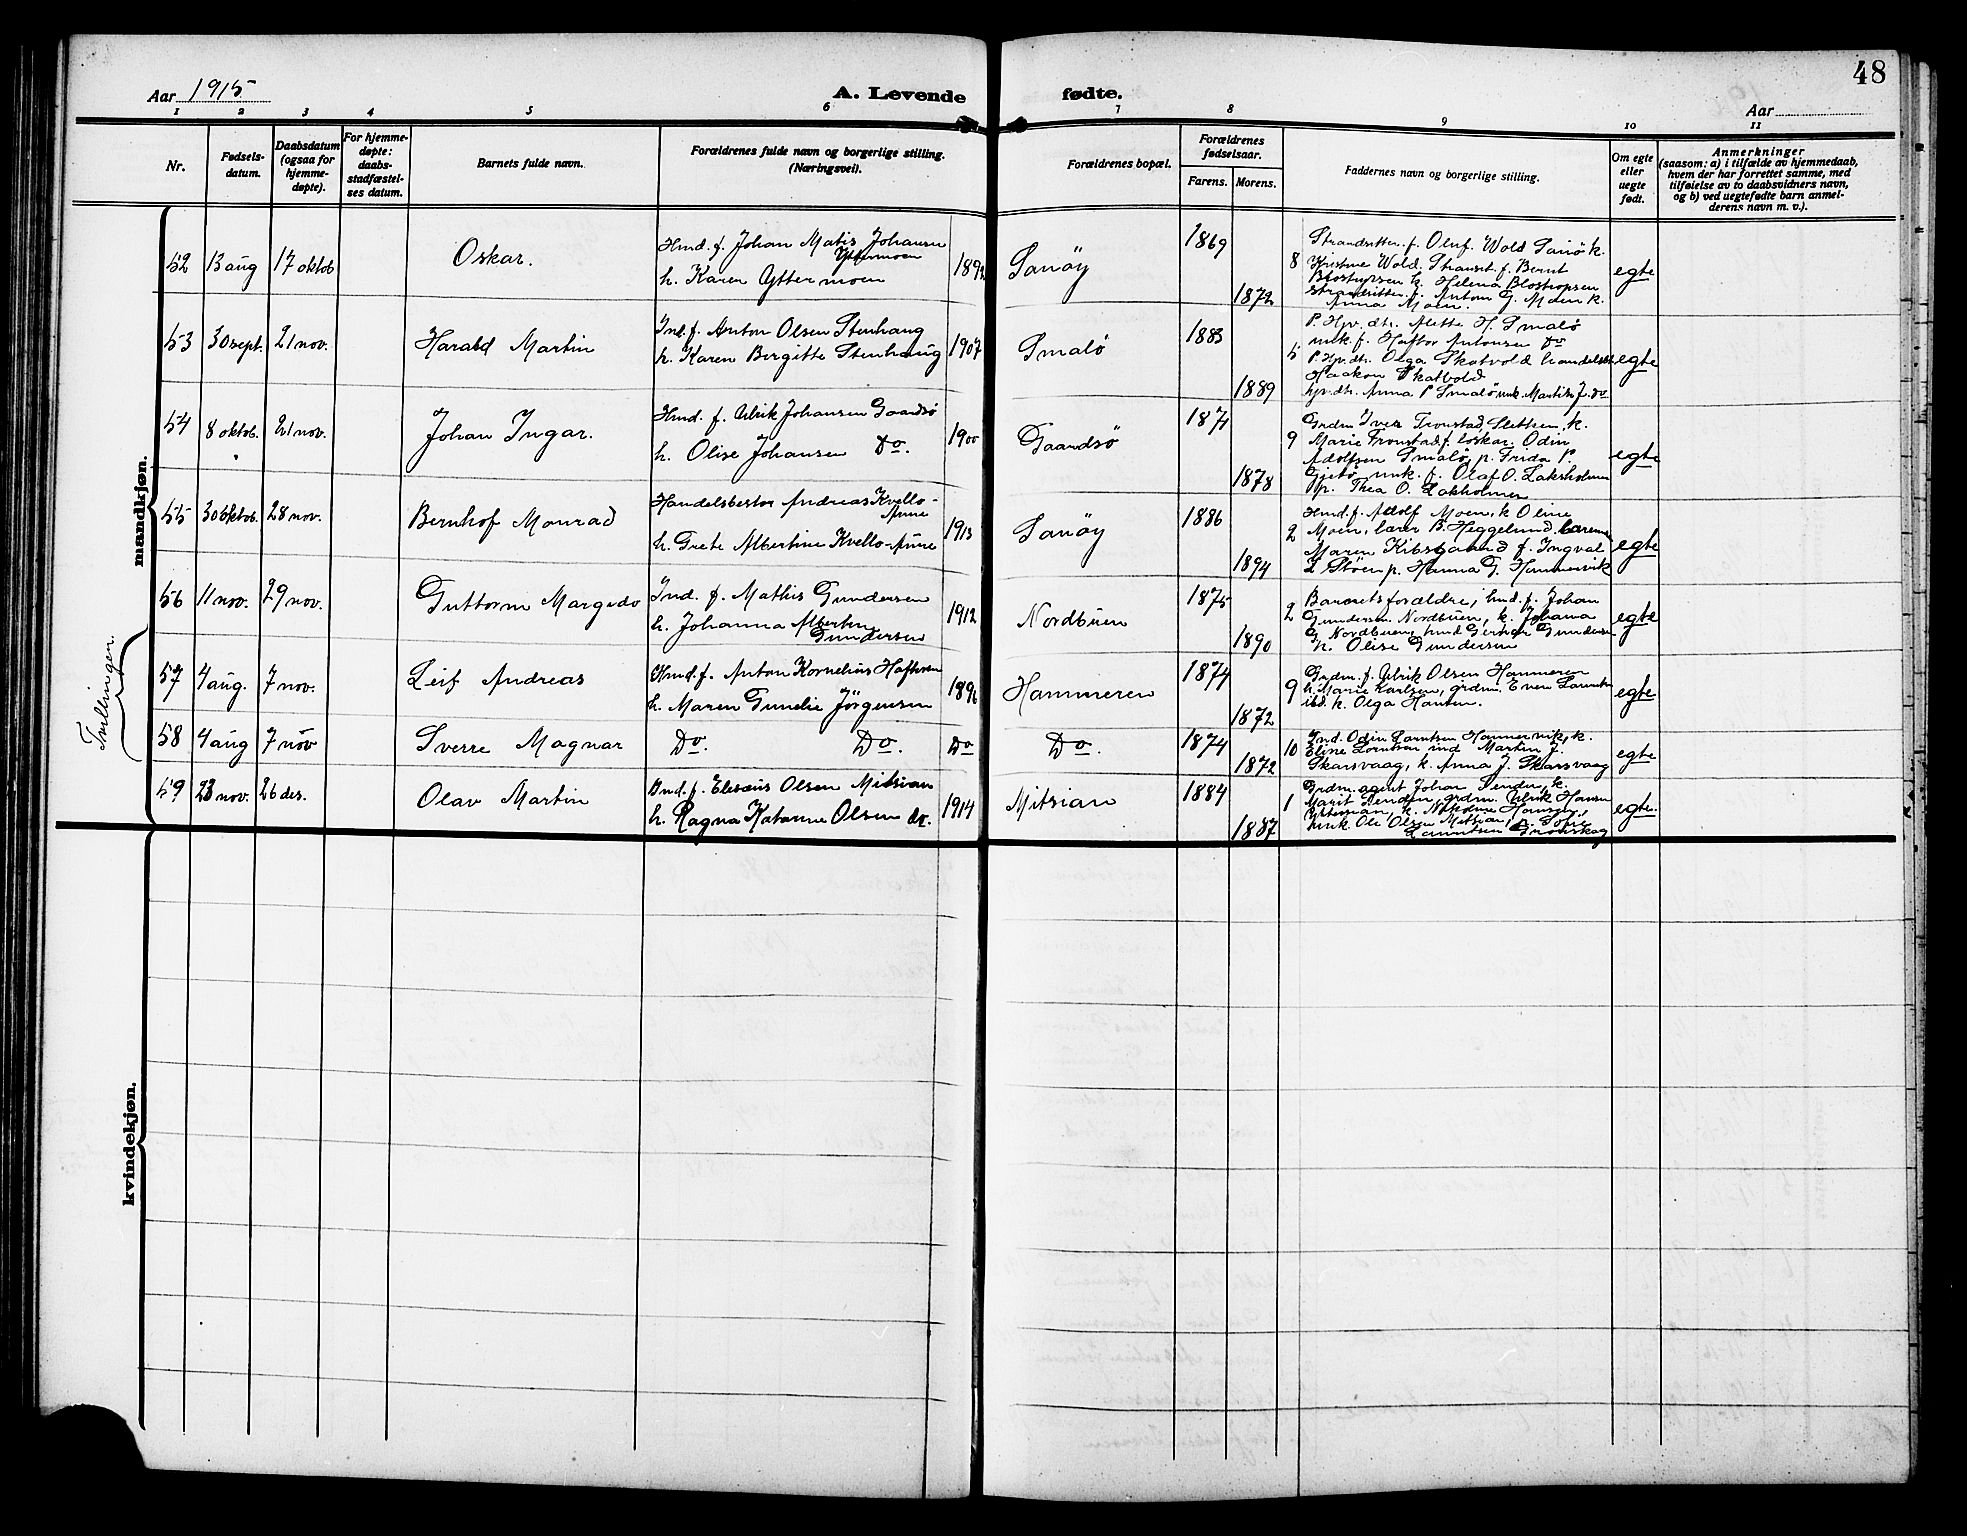 48
Aar 1915
A. Levende
fødte.
Aar
1 2 3 4 5 6 7 8 9 10 11
Nr.
Fødsels-
datum.
Daabsdatum
(ogsaa for
hjemme-
døpte).
For hjemme-
døpte:
daabs-
stadfæstel-
ses datum.
Barnets fulde navn.
Forældrenes fulde navn og borgerlige stilling.
(Næringsvei).
Forældrenes bopæl.
Forældrenes
fødselsaar.
Farens. Morens.
Faddernes navn og borgerlige stilling.
Om egte
eller
uegte
født.
Anmerkninger
(saasom: a) i tilfælde av hjemmedaab,
hvem der har forrettet samme, med
tilføielse av to daabsvidners navn,
og b) ved uegtefødte barn anmel-
derens navn m. v.).
mandkjøn.
52 13 aug 17 oktob Oskar.
Hmd. f. Johan Matis Johansen
Yttermoen
h. Karen Yttermoen
1892
Sanøy 1869 1872
Strandsitter. f. Oluf Wold Sanø k.
8 Kristine Wold, Stranset. f. Bernt
k. Helena
strandsitter f. Anton G. Moen k.
Anna Moen.
egte
53 30 sept. 21 nov. Harald Martin
Ind. f. Anton Olsen Stenhaug
h. Karen Birgitte Stenhaug
1907
Smalø 1883 1889
P. Hpv. dtr. Mette H. Smalø
unk. f. Haftor Antonsen Do
5 P. Hpv. dtr. Olga Skatvold
Haakon Skatvold
hpv. dtr. Anna P Smalø unk. Martin J. do
egte
54 8 oktob. 21 nov. Johan Ingar.
Hmd. f. Ulrik Johansen Gaardsø
h. Olise Johansen Do.
1900
Gaardsø 1874 1878
Grdm Iver Tronstad, Sletten, k.
9 Marie Tronstad f. loskar. Odin
Adolfsen Smalø, p. Frida P.
Gjetø, unk. f. Olaf O. Laksholmen
p. Thea O. Lakholmen
egte
55 30 oktob. 28 nov. Bernhof Monrad
Handelsbestor Andreas Kvello-
Aune
h. Grete Albertine Kvello-Aune
1913
Sanøy 1886 1894
Hmd. f. Adolf Moen, k Oline
2 Moen, lærer B. Heggelund, lærerine
Maren Kibsgaard f. Ingval
L Støen p. Hanna G. Hammervik
egte
56 11 nov. 29 nov. Guttorm Margido
Ind. f. Mathis Gundersen
h. Johanna Albertine
Gundersen
1912
Nordbuen 1875 1890
Barnets forældre, hmd. f. Johan
2 Gundersen Nordbuen, k. Johanna
G. Nordbuen, hmd Gerhar Gundersen
k. Olise Gundersen
egte
Tvillingen.
57 4 aug. 7 nov. Leif Andreas
Hmd. f. Anton Kornelius Haftersen
h. Maren Gunelie Jörgensen
1896
Hammeren 1874 1872
Grdm. f. Ulrik Olsen Hammeren
9 k. Marie Karlsen, grdm. Even
ibd. k. Olga Hansen.
egte
58 4 aug 7 nov Sverre Magnar
Do. Do. Do
Do. 1874 1872
Ind. Odin Larntsen Hammervik, k.
10 Eline Lorntsen ind Martin J.
Skarsvaag, k. Anna J. Skarsvaag
egte
59 23 nov. 26 des. Olav Martin
Ind. f. Eliseus Olsen Mitsian
h. Ragna Katarine Olsen do.
1914
Mitsian 1884 1887
Grdm. agent Johan Senden, k.
1 Marit Senden, grdm. Ulrik Hansen
Yttersian, k. Nikoline Hansen,
unk. Ole Olsen Mitsian, p. Sofie
Larntsen
egte.
kvindekjøn.